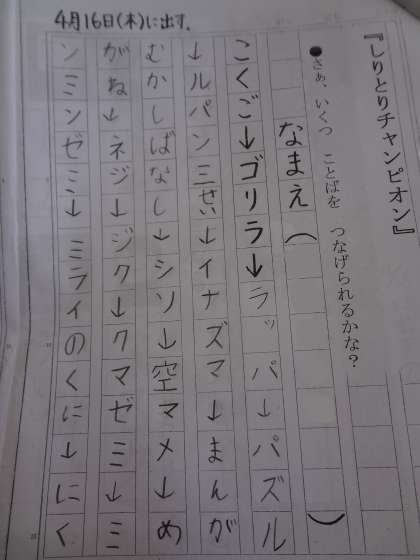 『しりとりチャンピオン』
●さぁ、いくつ ことばを つなげられるかな？
なまえ（ ）
こくご→ゴリラ→ラッパ→パズル
→ルパン三せい→イナズマ→まんが
むかしばなし→シソ→空マメ→め
がね→ネジ→ジク→クマゼミ→ミ
ンミンゼミ→ミライのくに→にく
4月16日(木)に出す。